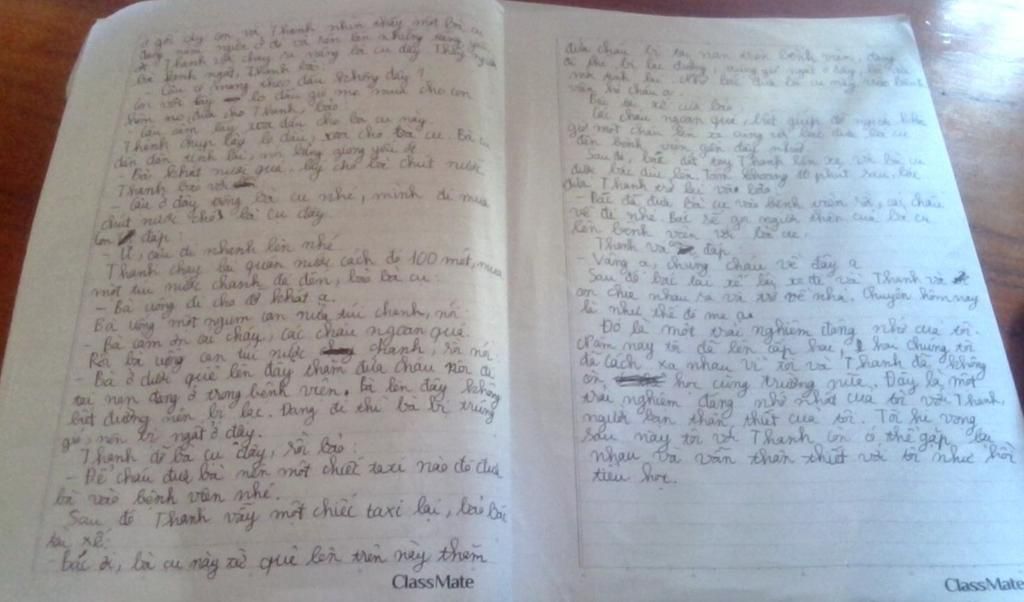 ở gối cây con và Thanh nhìn thấy một bà cụ
đang nằm ngất ở đó và
Thanh và chạy ra nâng bà cụ dậy. Thấy người
bà lạnh ngắt, Thanh bảo:
- Cậu có mang theo dầu không đấy?
Con với lấy lọ dầu gió mẹ mua cho con
hôm nọ, đưa cho Thanh, bảo:
- Cậu cầm lấy, xoa dầu cho bà cụ này.
Thanh chụp lấy lọ dầu, xoa cho bà cụ. Bà cụ
dần dần tỉnh lại, nói bằng giọng yếu ớt
- Bà khát nước quá, lấy cho bà chút nước.
Thanh bảo với
- Cậu ở đây cùng bà cụ nhé, mình đi mua
chút nước cho bà cụ đây
Con đáp:
- Ừ, cậu đi nhanh lên nhé.
Thanh chạy lại quán nước cách đó 100 mét, mua
một túi nước chanh đá đến, bảo bà cụ:
- Bà uống đi cho đỡ khát ạ.
Bà uống một ngụm cạn nửa túi chanh, nói:
- Bà cảm ơn các cháu, các cháu ngoan quá.
Rồi bà uống cạn túi nước chanh, rồi nói:
- Bà ở dưới quê lên đây thăm đứa cháu nói bị
tai nạn đang ở trong bệnh viện. Bà lên đây không
biết đường nên bị lạc. Đang đi thì bà bị trúng
gió, nên bị ngất ở đây.
Thanh đỡ bà cụ dậy, rồi bảo:
- Để cháu đưa bà lên một chiếc taxi nào đó đưa
bà vào bệnh viện nhé.
Sau đó Thanh vẫy một chiếc taxi lại, bảo bác
tài xế:
- Bác ơi, bà cụ này từ quê lên trên này thăm
ClassMate
đứa cháu bị tai nạn trên bệnh viện, đang
đi thì bị lạc đường, trúng gió ngất ở đây,
mới tỉnh lại. Nhờ bác đưa bà cụ này vào bệnh
viện hộ cháu ạ.
Bác tài xế cười bảo:
- Các cháu ngoan quá, biết giúp đỡ người khác
giờ một cháu lên xe cùng với bác đưa bà cụ
đến bệnh viện gần đây nhất.
Sau đó, bác dắt tay Thanh lên xe, và bà cụ
được bác dìu lên. Tầm khoảng 10 phút sau, bác
đưa Thanh trở lại và bảo:
- Bác đã đưa bà cụ vào bệnh viện rồi, các cháu
về đi nhé. Bác sẽ gọi người thân của bà cụ
lên bệnh viện với bà cụ.
Thanh và đáp:
- Vâng ạ, chúng cháu về đây ạ.
Sau đó bác tài xế lấy xe đi và Thanh và
con chia nhau ra và trở về nhà. Chuyện hôm nay
là như thế đó mẹ ạ.
Đó là một trải nghiệm đáng nhớ của tôi.
Năm nay tôi đã lên cấp hai, hai chúng tôi
đã cách xa nhau vì tôi và Thanh đã không
còn học cùng trường nữa. Đây là một
trải nghiệm đáng nhớ nhất của tôi với Thanh,
người bạn thân thiết của tôi. Tôi hi vọng
sau này tôi với Thanh còn có thể gặp lại
nhau và vẫn thân thiết với tôi như hồi
tiểu học.
ClassMate